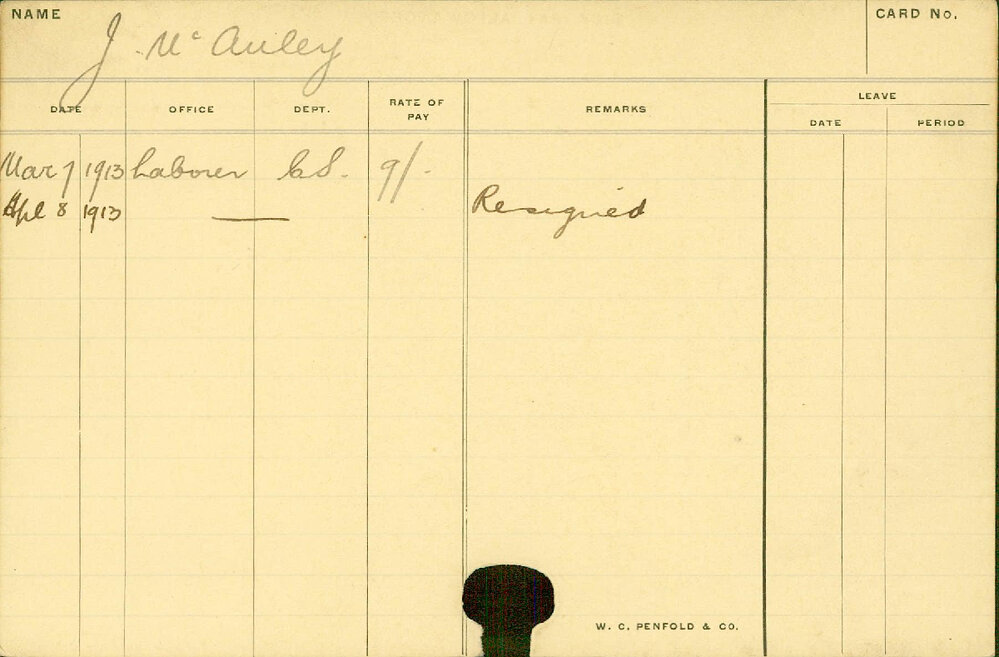 NAME
CARD No.
J. McAuley
DATE OFFICE DEPT. RATE OF PAY REMARKS LEAVE
DATE PERIOD
Mar 7 1913 Laborer C.S. 9/-
Apl 8 1913 — Resigned
W. C. PENFOLD & CO.